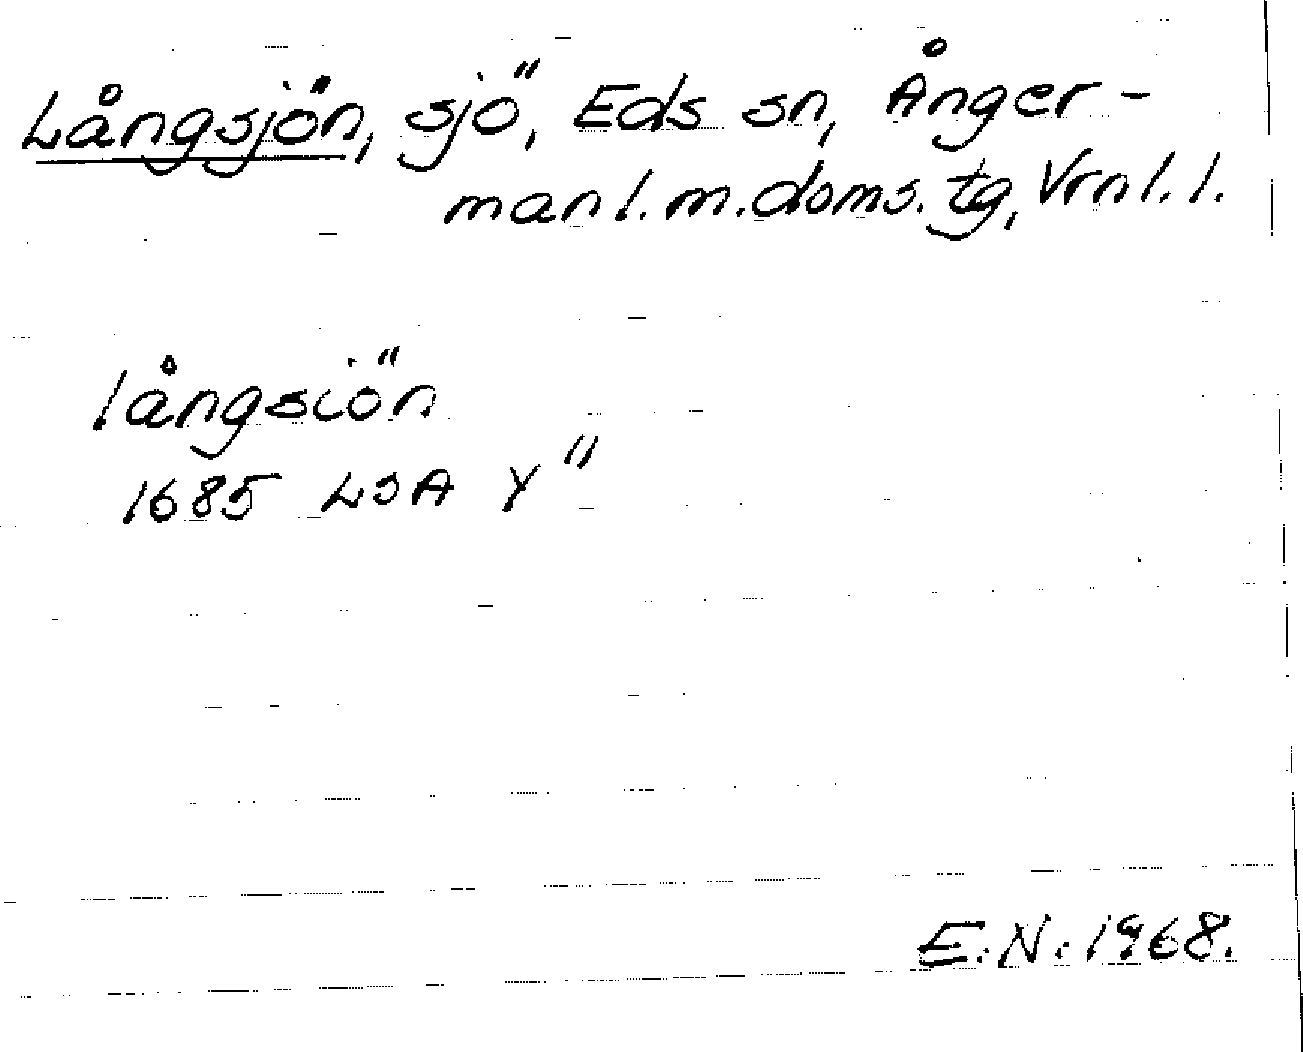 Långsjön, sjö, Eds sn, Ånger-
manl. m. doms. tg, Vrnl. l.
långsiön
1685 LSA Y"
E.N. 1968.